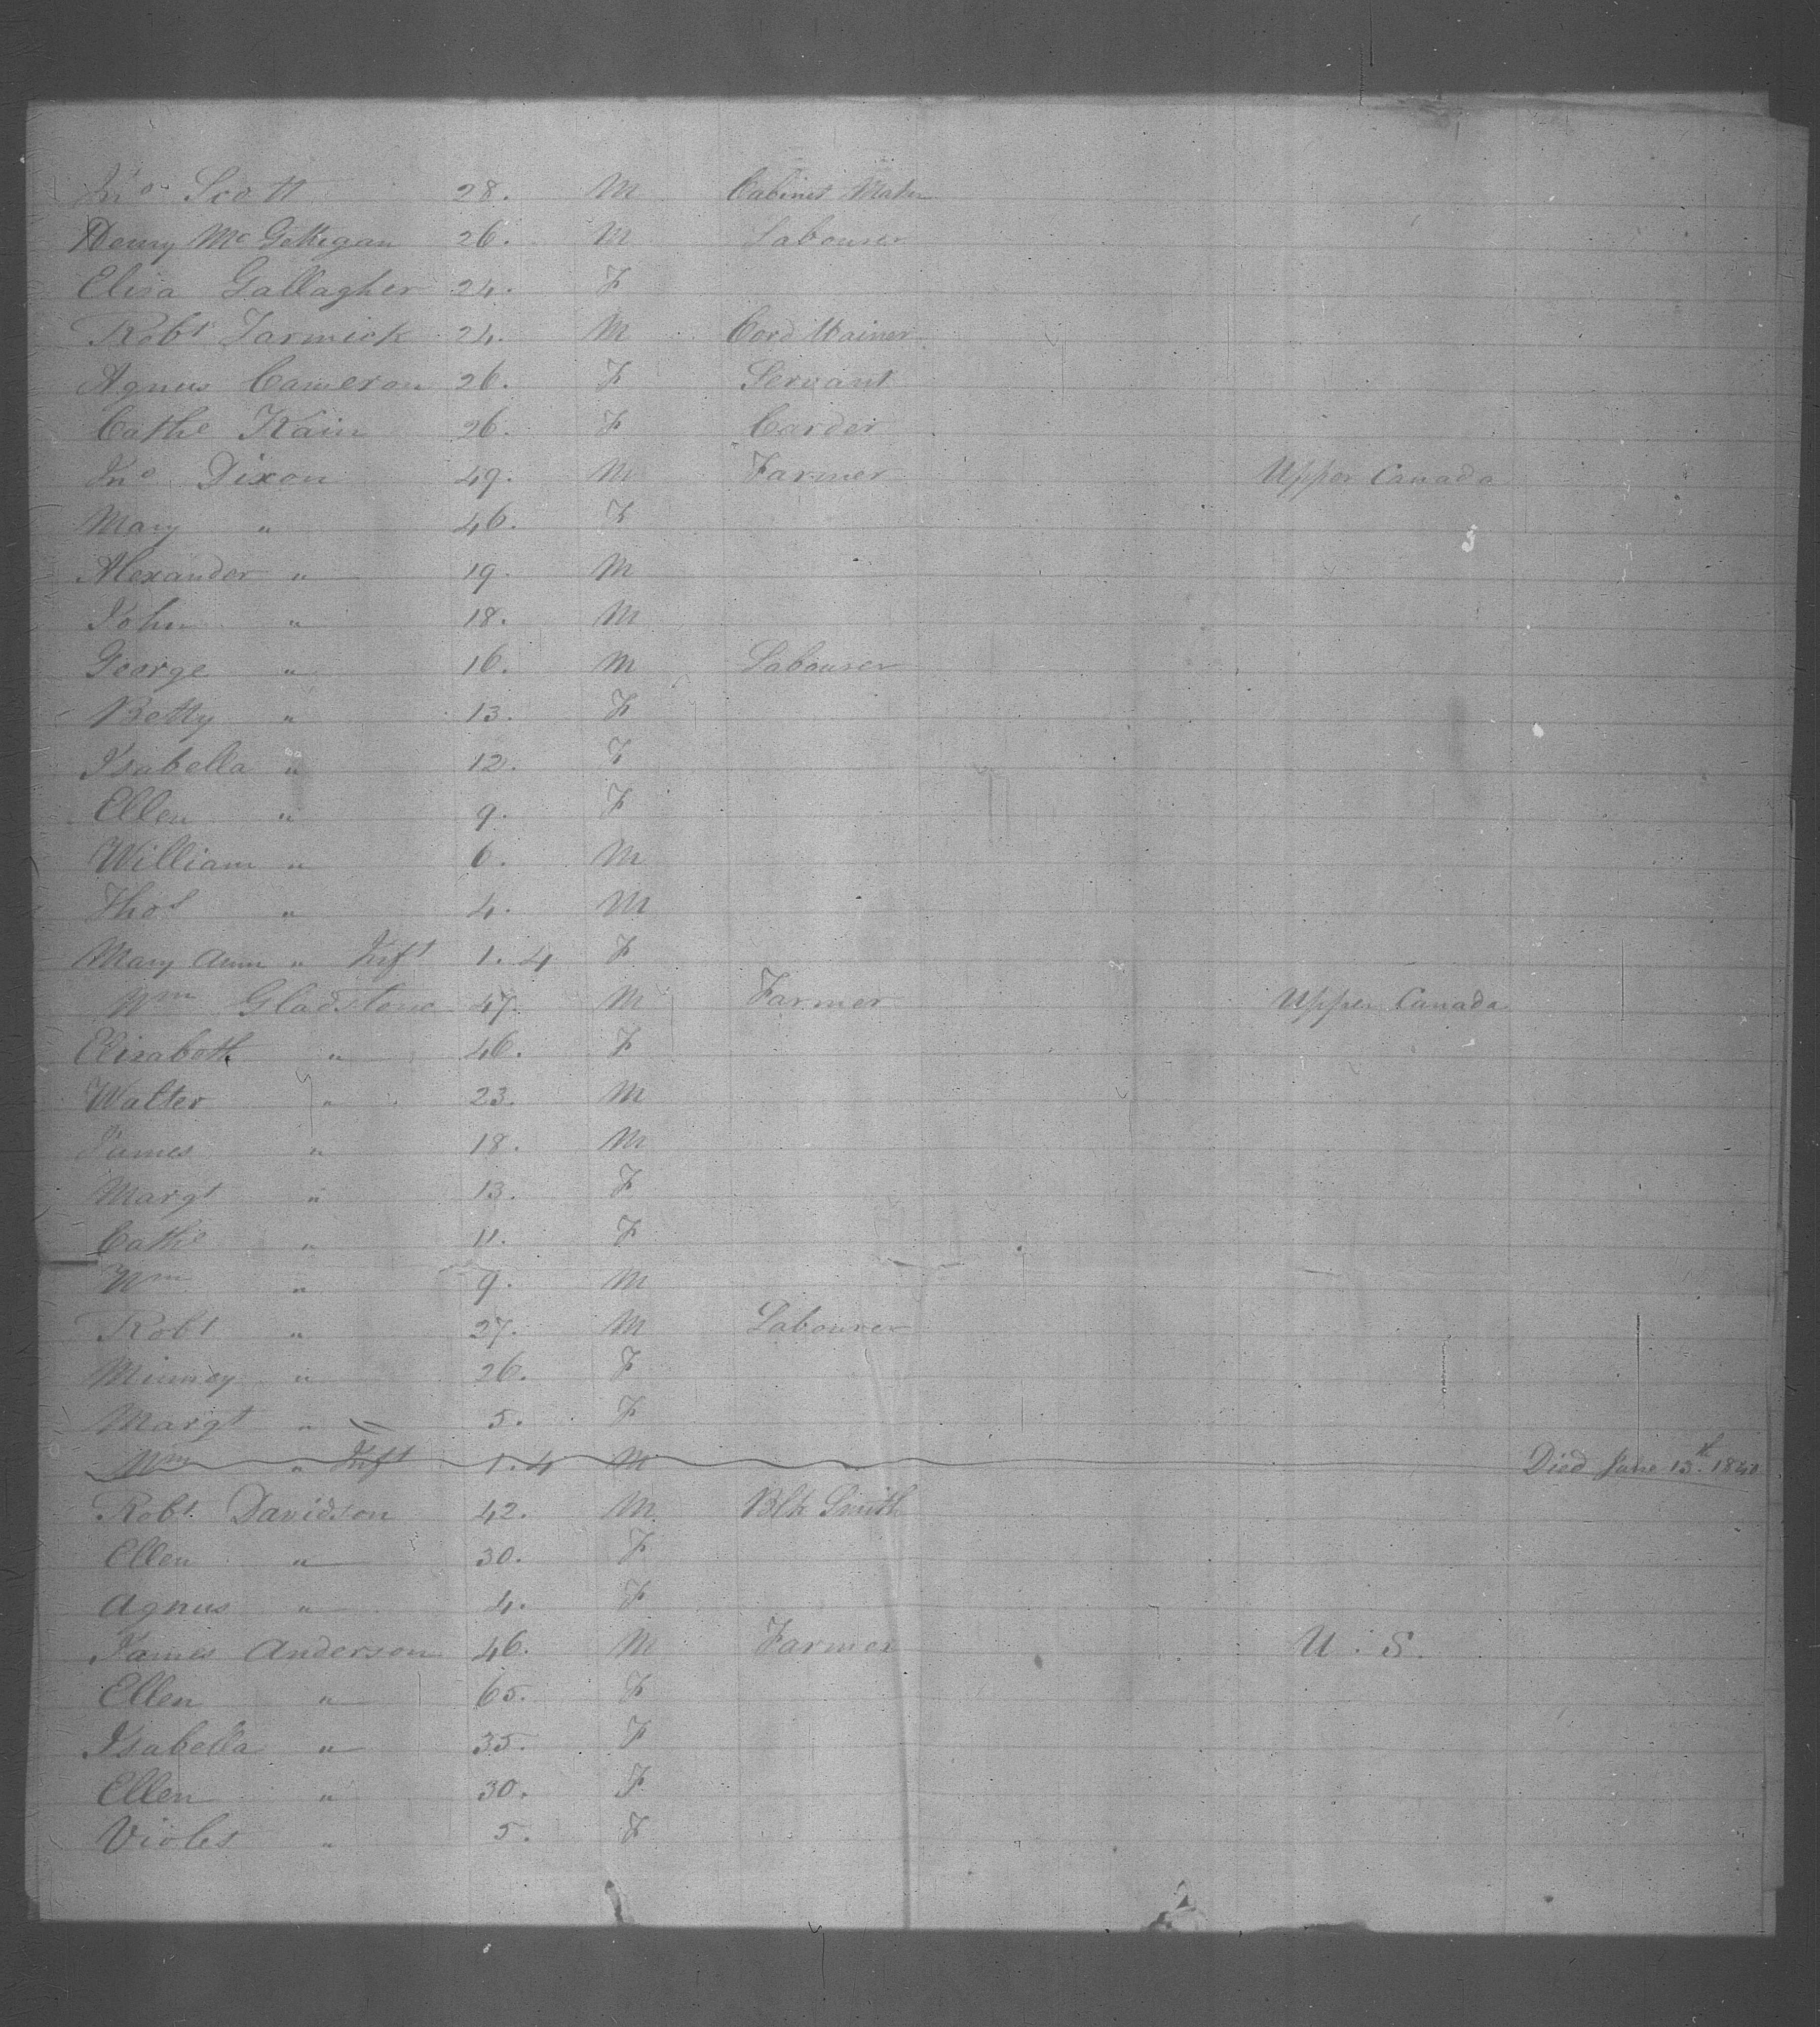 Jno Scott 28. M Cabinet Maker
Denny McGettigan 26. M Labourer
Eliza Gallagher 24. F
Robt Jarmick 24. M Cord Wainer
Agnus Cameron 26. F Servant
Cathe Kain 26. F Carder
Jno Dixon 49. M Farmer Upper Canada
Mary " 46. F
Alexander " 19. M
John " 18. M
George " 16. M Labourer
Betty " 13. F
Isabella " 12. F
Ellen " 9. F
William " 6. M
Thos " 4. M
Mary Ann " Inft 1.4 F
Wm Gladstone 47. M Farmer Upper Canada
Elizabeth " 46. F
Walter " 23. M
James " 18. M
Margt " 13. F
Cathe " 11. F
Wm " 9. M
Robt " 27. M Labourer
Minney " 26. F
Margt " 5. F
Wm " Inft 1.4 M Died June 13th. 1840
Robt Davidson 42. M Blk Smith
Ellen " 30. F
Agnus " 4. F
James Anderson 46. M Farmer U.S.
Ellen " 65. F
Isabella " 35. F
Ellen " 30. F
Violet " 5. F